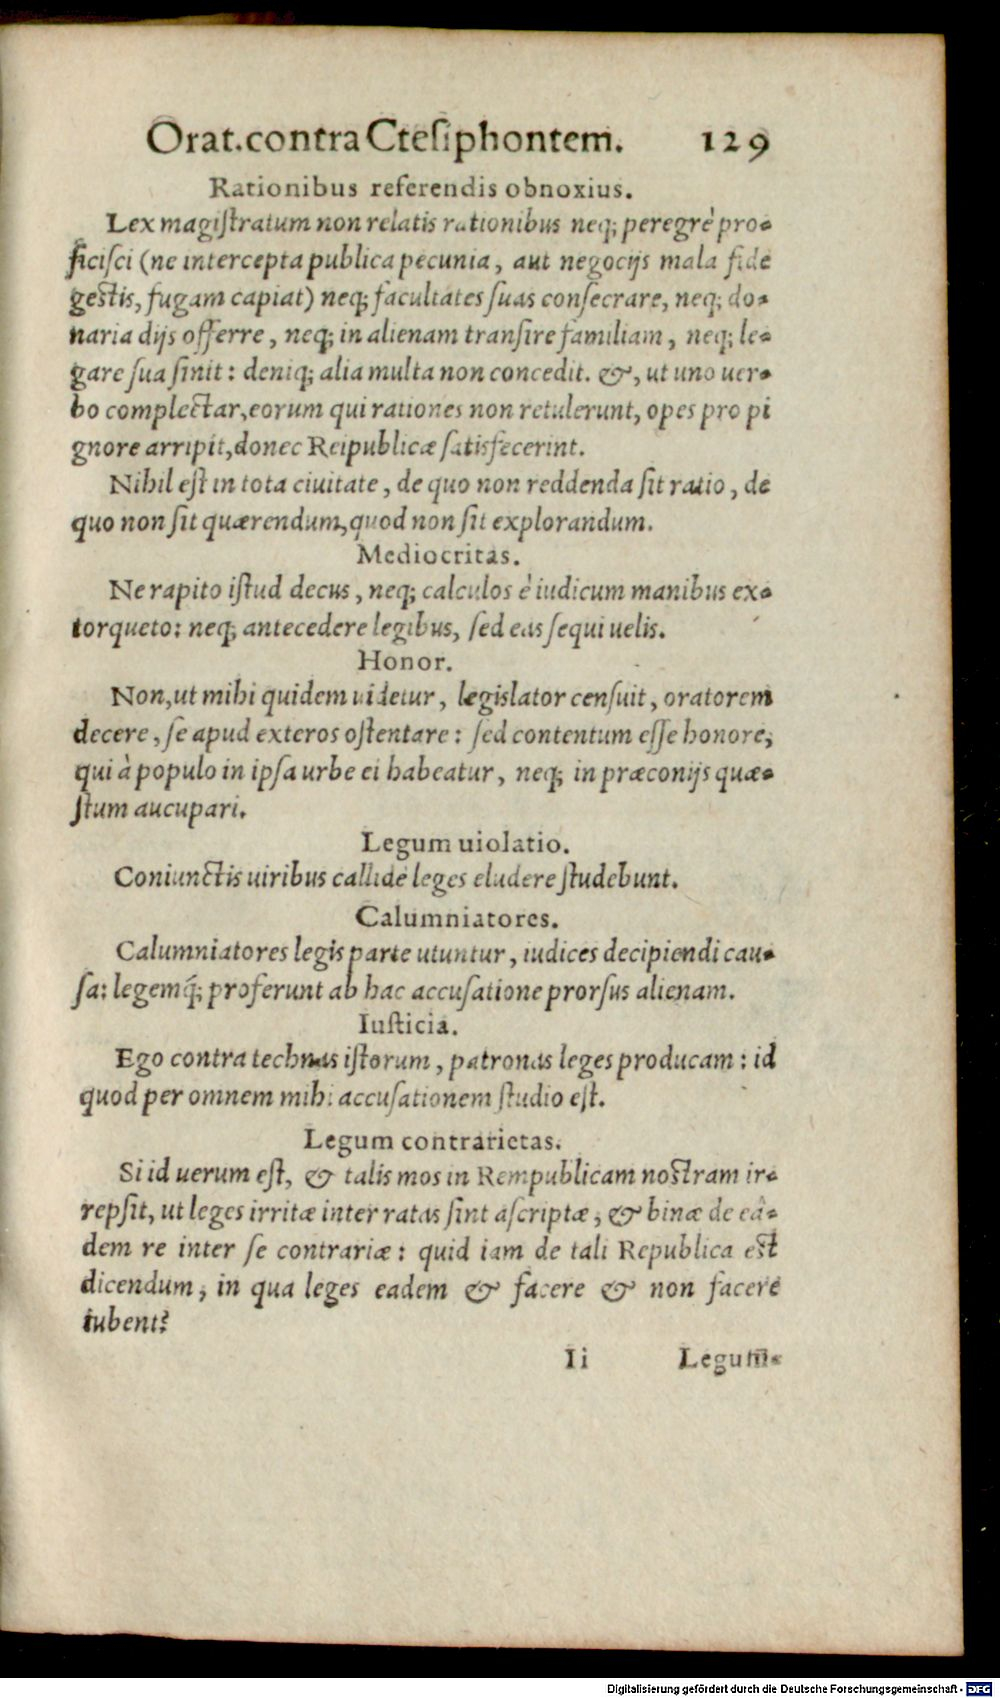 Orat. contra Ctesiphontem. 129
Rationibus referendis obnoxius.
Lex magiſtratum non relatis rationibus neq; peregrè pro-
ficiſci (ne intercepta publica pecunia, aut negocijs mala fide
geſtis, fugam capiat) neq; facultates ſuas conſecrare, neq; do-
naria dijs offerre, neq; in alienam tranſire familiam, neq; le-
gare ſua ſinit: deniq; alia multa non concedit. &, ut uno uer-
bo complectar, eorum qui rationes non retulerunt, opes pro pi
gnore arripit, donec Reipublicæ ſatisfecerint.
Nihil eſt in tota ciuitate, de quo non reddenda ſit ratio, de
quo non ſit quærendum, quod non ſit explorandum.
Mediocritas.
Ne rapito iſtud decus, neq; calculos è iudicum manibus ex-
torqueto: neq; antecedere legibus, ſed eas ſequi uelis.
Honor.
Non, ut mihi quidem uidetur, legislator cenſuit, oratorem
decere, ſe apud exteros oſtentare: ſed contentum eſſe honore,
qui à populo in ipſa urbe ei habeatur, neq; in præconijs quæ-
ſtum aucupari.
Legum uiolatio.
Coniunctis uiribus callidè leges eludere ſtudebunt.
Calumniatores.
Calumniatores legis parte utuntur, iudices decipiendi cau-
ſa: legemq́; proferunt ab hac accuſatione prorſus alienam.
Iuſticia.
Ego contra technas iſtorum, patronas leges producam: id
quod per omnem mihi accuſationem ſtudio eſt.
Legum contrarietas.
Si id uerum eſt, & talis mos in Rempublicam noſtram ir-
repſit, ut leges irritæ inter ratas ſint aſcriptæ, & binæ de eâ-
dem re inter ſe contrariæ: quid iam de tali Republica eſt
dicendum, in qua leges eadem & facere & non facere
iubent?
Ii Legum-
Digitalisierung gefördert durch die Deutsche Forschungsgemeinschaft - DFG